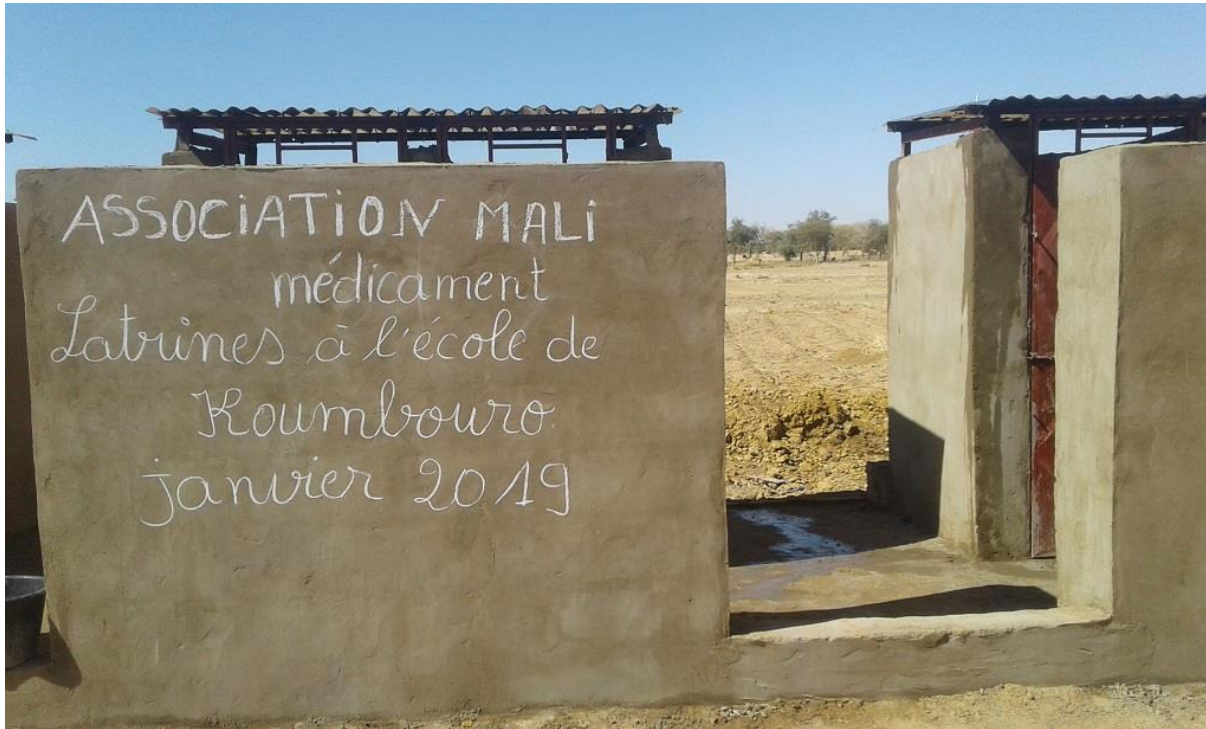 ASSOCIATION MALI
médicament
Latrines à l'école de
Koumbouro.
janvier 2019